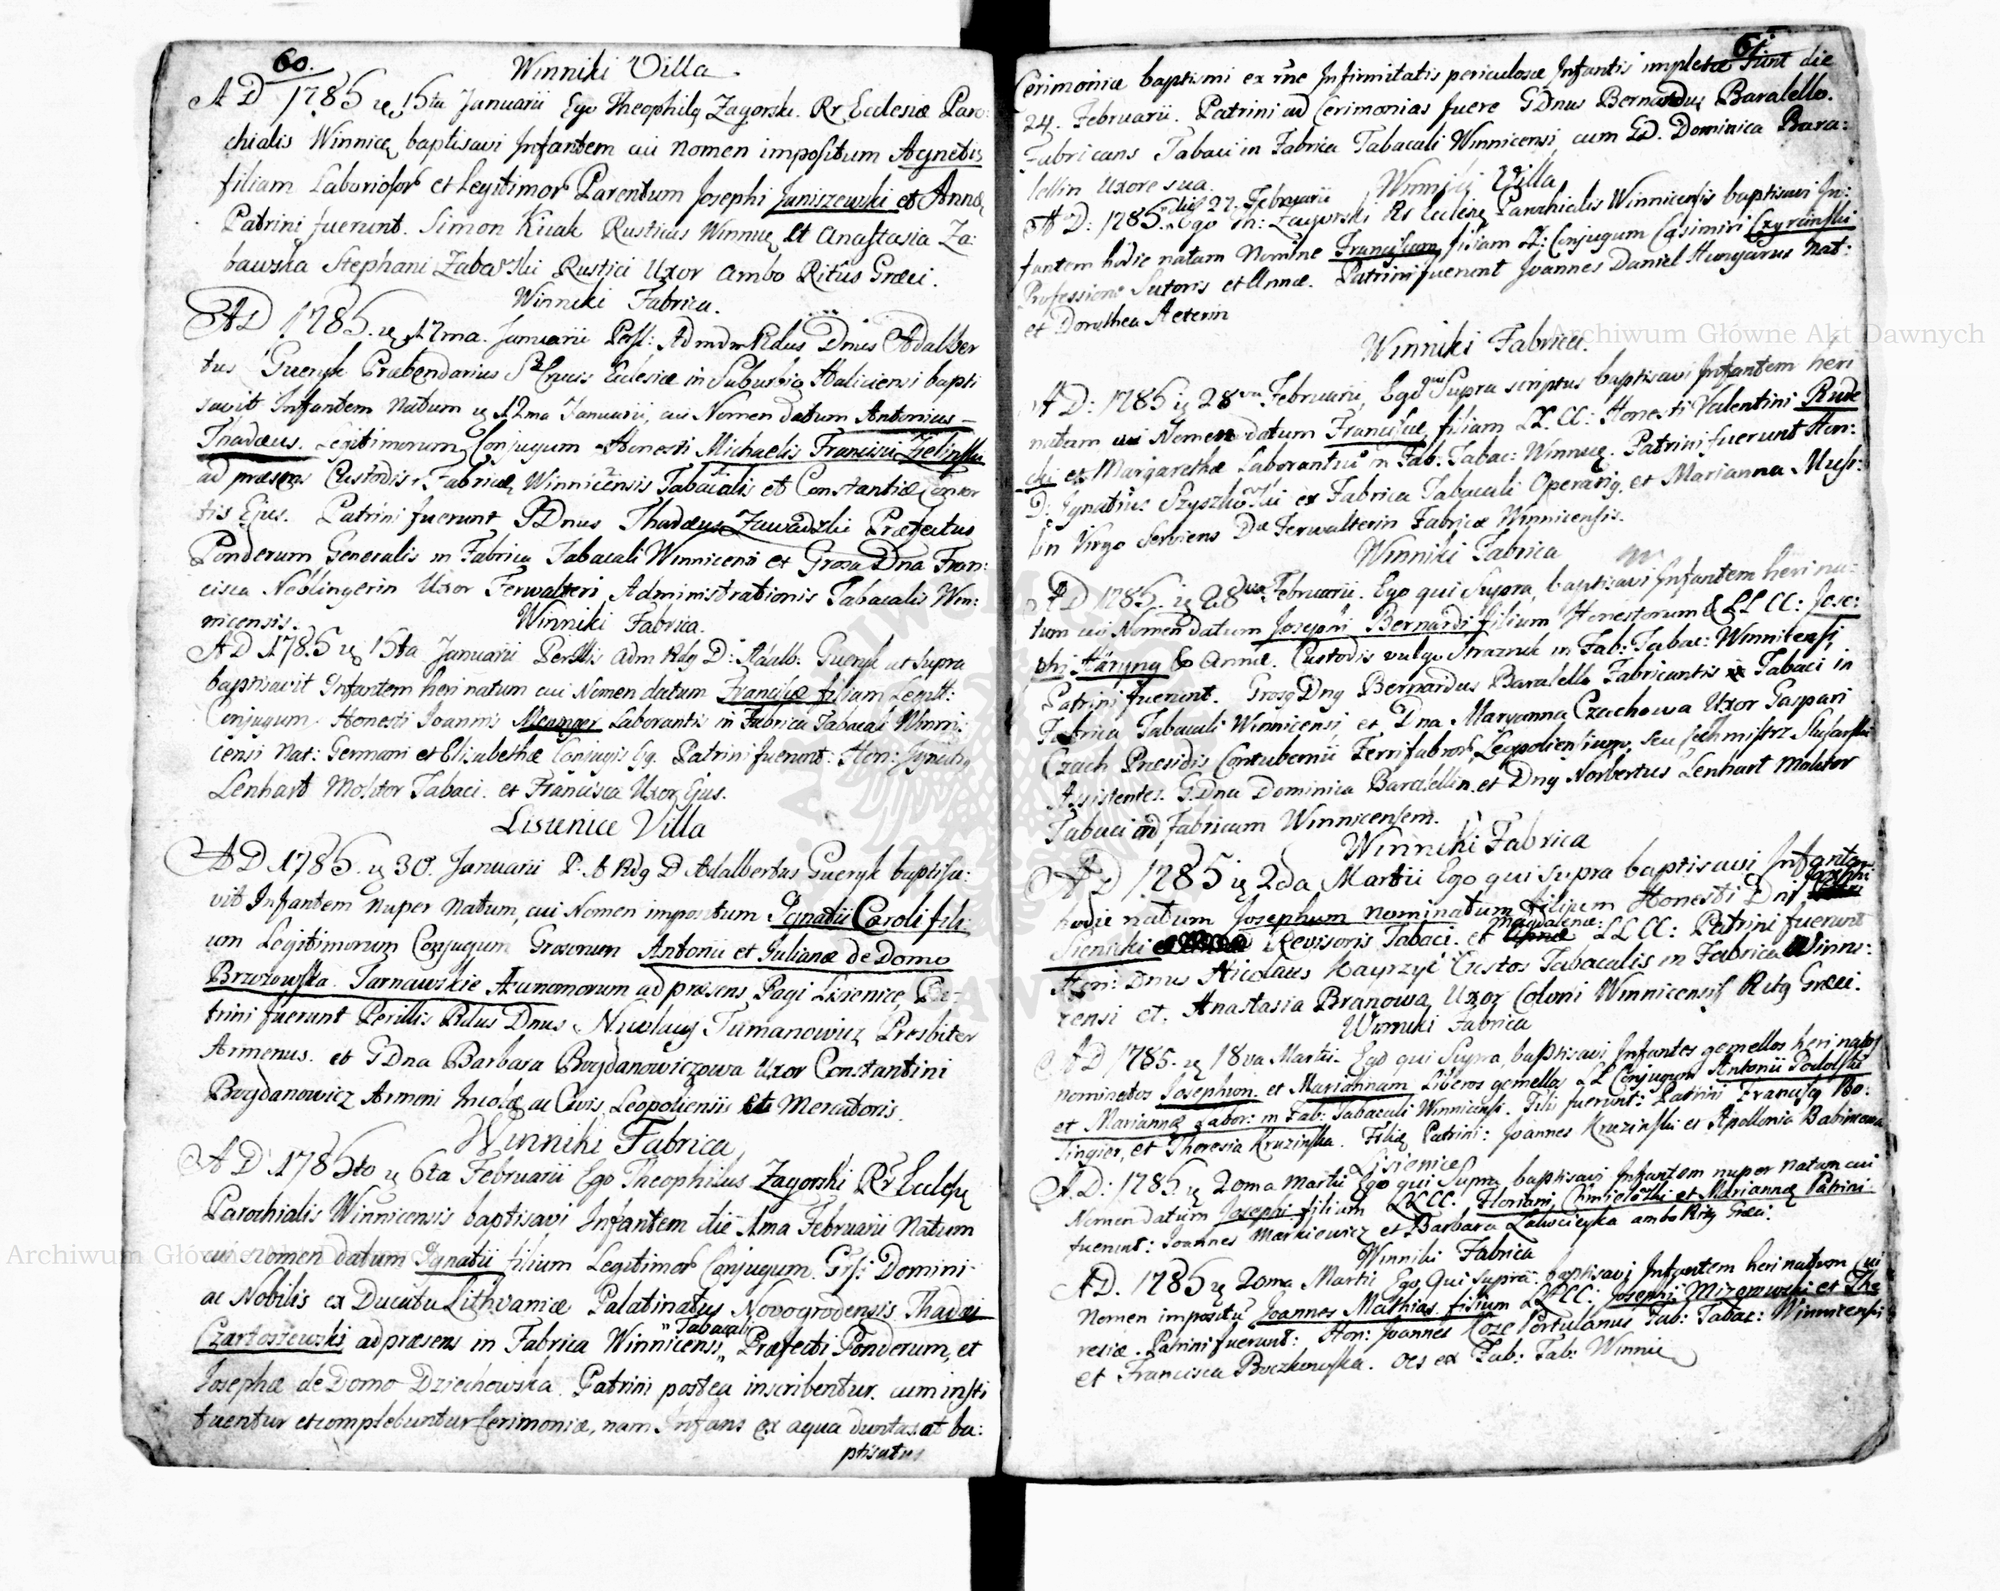 60.
Winniki Villa
A D 1785 ię 15ta Januarii Ego Theophilus Zagorski Rr Ecclesiæ Paro:
chialis Winnicę baptisavi Infantem cui nomen impositum Agnetis
filiam Laboriosor et Legitimor Parentum Josephi Janiszewski et Annæ
Patrini fuerunt. Simon Kuak Rusticus Winnicę Et Anastasia Za:
bawska Stephani Zabawski Rustici Uxor ambo Ritûs Græci.
Winniki Fabrica.
A D 1785. ię 17ma. Januarii Perill: Admdm Rdus Dnus Adalber
tus Gueryk Præbendarius S Crucis Ecclesiæ in Suburbio Haliciensi bapti
savit Infantem Natum ię 12ma Januarii, cui Nomen datum Antonius
Thadæus. Legitimorum Conjugum Honesti Michaelis Francisci Zielinski
ad præsens Custodis Fabricæ Winnicensis Tabacalis et Constantiæ Consor
tis Ejus. Patrini fuerunt GDnus Thadæus Zawadzki Præfectus
Ponderum Generalis in Fabrica Tabacali Winnicensi et Grosa Dna Fran:
cisca Neblingerin Uxor Ferwalteri Administrationis Tabacalis Win:
nicensis.
Winniki Fabrica.
A D 1785 ię 15ta Januarii Perillis Adm Rdg D: Adalb. Gueryk ut supra
baptisavit Infantem heri natum cui Nomen datum Franciscæ filiam Legitt:
Conjugum Honesti Joannis Menzger Laborantis in Fabrica Tabacali Winni:
censi Nat: Germani et Elisabethæ Conjugis Eg. Patrini fuerunt: Hon: Ignatig
Lenhart Molitor Tabaci. et Francisca Uxor Ejus.
Lisienice Villa
A D 1785. ię 30. Januarii P. A Rdg D Adalbertus Gueryk baptisa:
vit Infantem nuper Natum, cui Nomen impositum Ignatii Caroli fili
um Legitimorum Conjugum Grosorum Antonii et Julianæ de Domo
Brzozowska Tarnawskie Æconomorum ad præsens Pagi Lisienice, Pa:
trini fuerunt Perillis Rdus Dnus Nicolaus Tumanowicz Presbiter
Armenus. et GDna Barbara Bogdanowiczowa Uxor Constantini
Bogdanowicz Armeni Incolæ ac Civis Leopoliensis et Mercatoris.
Winniki Fabrica
A D 1785to ię 6ta Februarii Ego Theophilus Zagorski Rr Eccleię
Parochialis Winnicensis baptisavi Infantem die 1ma Februarii Natum
cui Nomen datum Ignatii filium Legitimor Conjugum Grs: Domini
ac Nobilis ex Ducatu Lithvaniæ Palatinatus Novogrodensis Thadæi
Czartoszewski ad præsens in Fabrica Winnicensi Tabacali Præfecti Ponderum, et
Josephæ de Domo Dziechowska. Patrini postea inscribentur. cum insti
tuentur et complebuntur Cerimoniæ, nam Infans ex aqua duntaxat ba:
ptisatus
61.
Cerimoniæ baptismi ex rne Infirmitatis periculosæ Infantis impletæ sunt die
24. Februarii. Patrini ad Cerimonias fuere GDnus Bernardus Baralello.
Fabricans Tabaci in Fabrica Tabacali Winnicensi, cum GD. Dominica Bara:
lellin Uxore sua.
Winniki Villa
A D: 1785. die 27. Februarii Ego Th: Zagorski Rr Ecclesię Parochialis Winnicensis baptisavi In:
fantem hodie natam Nomine Franciscam filiam LL: Conjugum Casimiri Czyrcinski
Professione Sutoris et Annæ. Patrini fuerunt Joannes Daniel Hungarus Nat:
et Dorothea Aeterin
Winniki Fabrica.
A D: 1785 ię 28va Februarii, Ego qui Supra scriptus baptisavi Infantem heri
natam cui Nomen datum Franciscæ, filiam LL. CC: Honesti Valentini Rude
cki et Margarethæ Laborantiu in Fab: Tabac: Winnicę. Patrini fuerunt Hon:
D: Ignatius Szyszkowski ex Fabrica Tabacali Operarig, et Marianna Mus:
lin Virgo Serviens Dæ Ferwalterin Fabricæ Winnicensis.
Winniki Fabrica
A D 1785. ię 28va Februarii. Ego qui Supra, baptisavi Infantem heri na:
tum cui Nomen datum Josephi Bernardi filium Honestorum & LL CC: Jose:
phi Haryng & Annæ. Custodis vulgo Straznik in Fab: Tabac: Winnicensi,
Patrini fuerunt. Grosg Dng Bernardus Baralello Fabricantis Tabaci in
Fabrica Tabacali Winnicensi, et Dna Maryanna Czachowa Uxor Gaspari
Czach Præsidis Contubernii Ferrifabror Leopoliensium, seu Cechmistrz Slusarski
Assistentes. GDna Dominica Baralellin et Dng Norbertus Lenhart Molitor
Tabaci ad Fabricam Winnicensem.
Winniki Fabrica
A D 1785 ię 2da Martii Ego qui supra baptisavi Infantem
hodie natum Josephum nominatum filium Honesti Dni Josephi
Sieniki Revisoris Tabaci. et Magdalenæ: LL CC: Patrini fuerunt
Hon: Dnus Nicolaus Custos Tabacalis in Fabrica Winni:
censi et. Anastasia Branowa Uxor Coloni Winnicensis Ritg Græci.
Winniki Fabrica
A D 1785. ię 18va Martii. Ego qui Supra, baptisavi Infantes gemellos heri natos
nominatos Josephum et Mariannam Liberos gemellos LL Conjugum Antonii Podolski
et Mariannæ Labor: in Fab: Tabacali Winnicensi. Filii fuerunt: Patrini Francisg Bo:
singier, et Theresia Kruzinska. Filiæ Patrini: Joannes Kruzinski et Apollonia Babinowa
Lisienice
A. D: 1785. ię 20ma Martii Ego qui Supra baptisavi Infantem nuper Natum cui
Nomen datum Josephi filium LL CC. Floriani Chmielowski et Mariannæ Patrini
fuerunt: Joannes Markiewicz et Barbara ambo Ritg Græci.
Winniki Fabrica
A D. 1785 ię 20ma Martii Ego Qui Supra baptisavi Infantem heri natum cui
Nomen impositu Joannes Mathias filium LL CC: Josephi Mizerowski et The
resiæ. Patrini fuerunt: Hon: Joannes Koze Portulanus Fab: Tabac: Winnicensis
et Francisca Boczkowska. oes ex Fab: Tab: Winnic
Archiwum Główne Akt Dawnych
Archiwum Główne Akt Dawnych